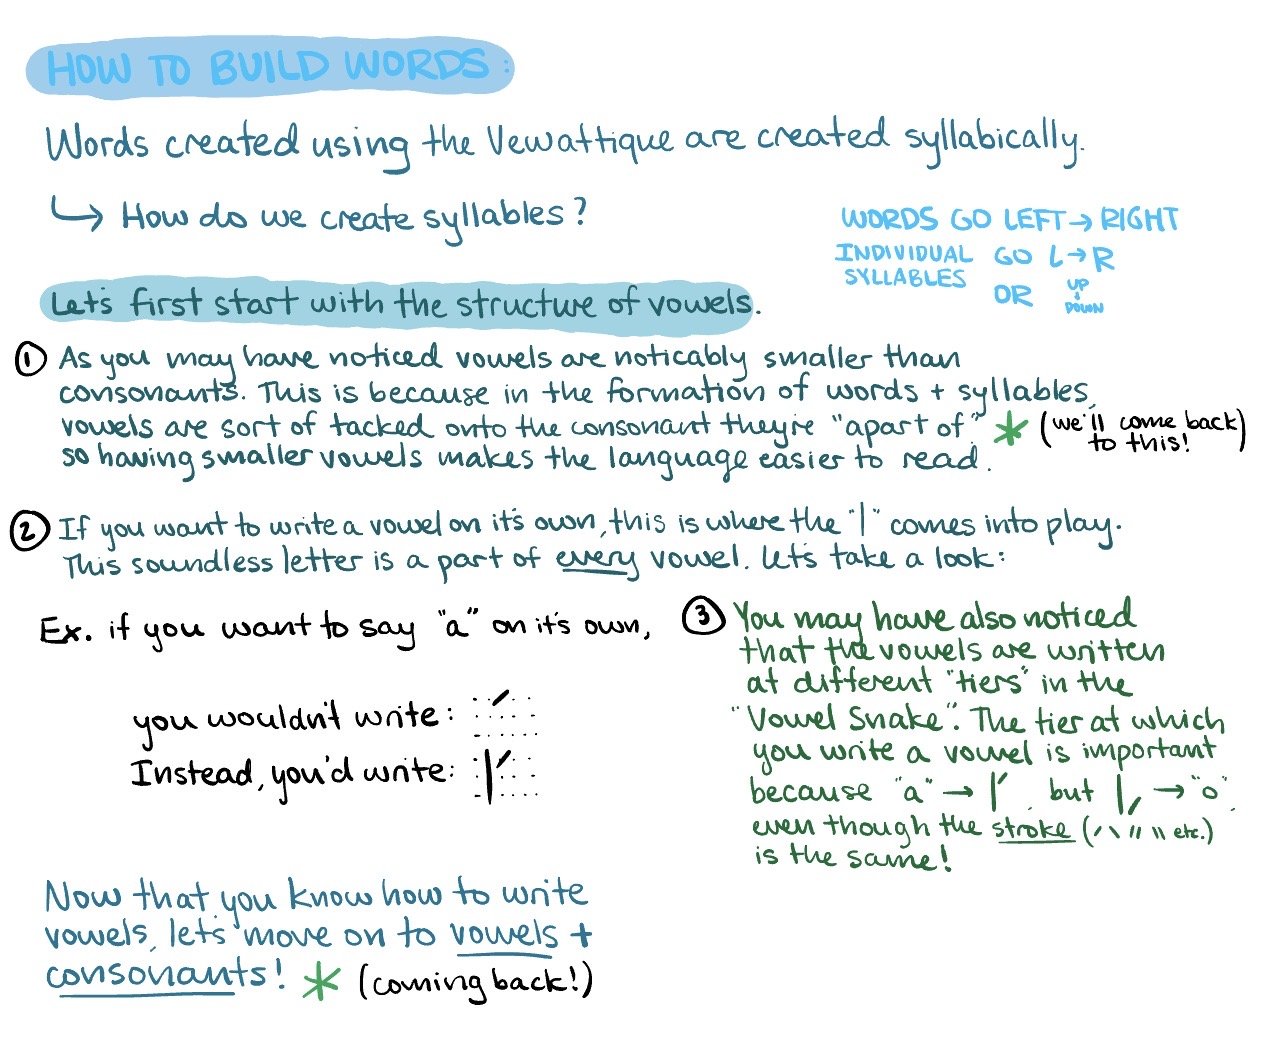 HOW TO BUILD WORDS:
Words created using the Vewattique are created syllabically.
↳ How do we create syllables?
WORDS GO LEFT → RIGHT
INDIVIDUAL SYLLABLES GO L → R
OR UP ↓ DOWN
Let's first start with the structure of vowels.
① As you may have noticed vowels are noticably smaller than
consonants. This is because in the formation of words + syllables,
vowels are sort of tacked onto the consonant they're "apart of"
* (we'll come back
to this!)
so having smaller vowels makes the language easier to read.
② If you want to write a vowel on it's own, this is where the "|" comes into play.
This soundless letter is a part of every vowel. Let's take a look:
Ex. if you want to say "a" on it's own,
you wouldn't write:
Instead, you'd write:
③ You may have also noticed
that the vowels are written
at different "tiers" in the
"Vowel Snake". The tier at which
you write a vowel is important
because "a" → |′ but |, → "o",
even though the stroke (/ \ // \\ etc.)
is the same!
Now that you know how to write
vowels, let's move on to vowels +
consonants! * (coming back!)